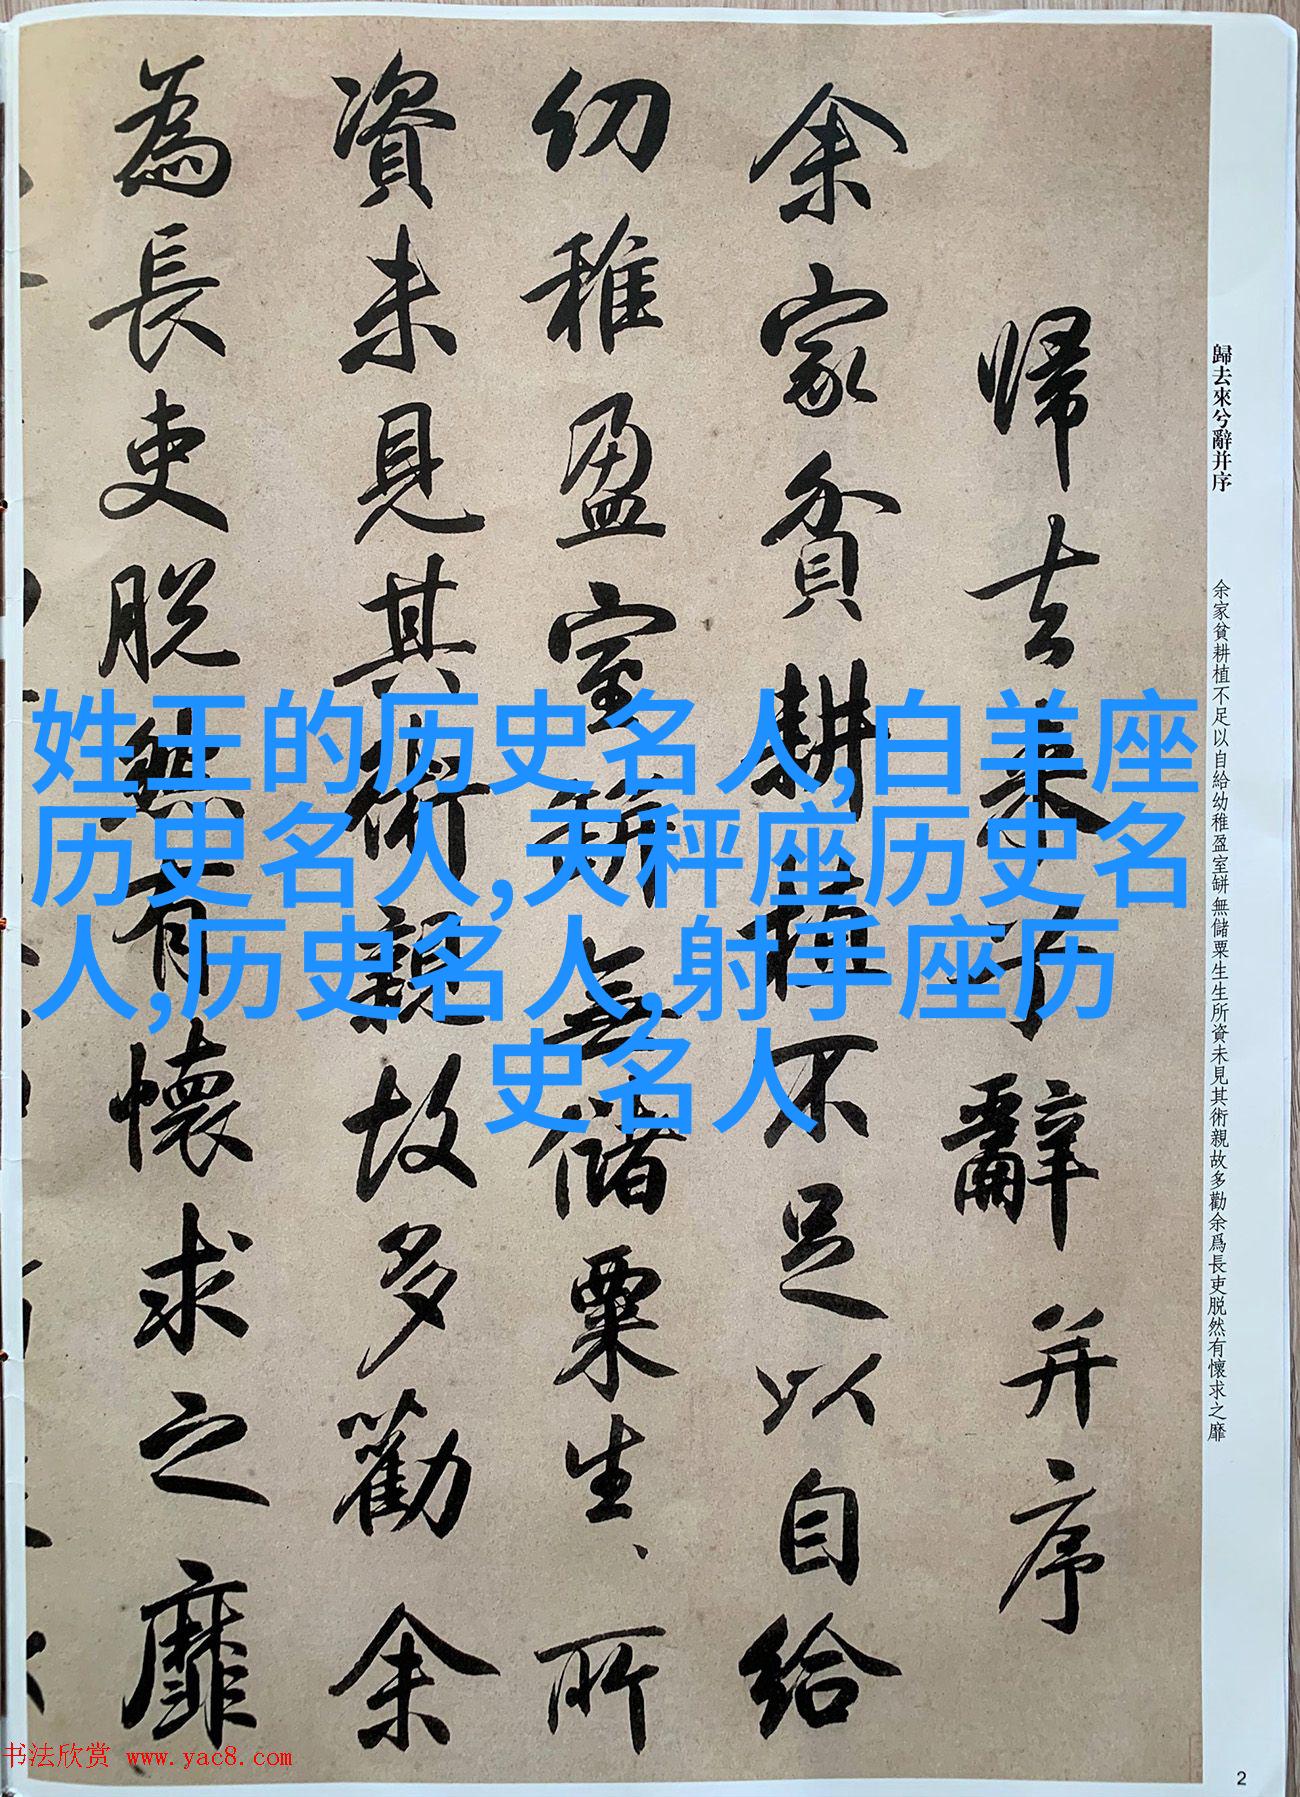 歸去來兮辭并序
余家貧耕植不足以自給幼稚盈室缾無儲粟生生所資未見其術親故多勸余爲長吏脱然有懷求之靡
帰去来兮辭并序
余家貧耕植不足以自給
幼稚盈室缾無儲粟生、所
資未見其術親故多勸余
為長吏脱然有懷求之靡
姓王的历史名人,白羊座
历史名人,天秤座历史名
人,历史名人,射手座历
史名人
书法欣赏 www.yac8.com
2